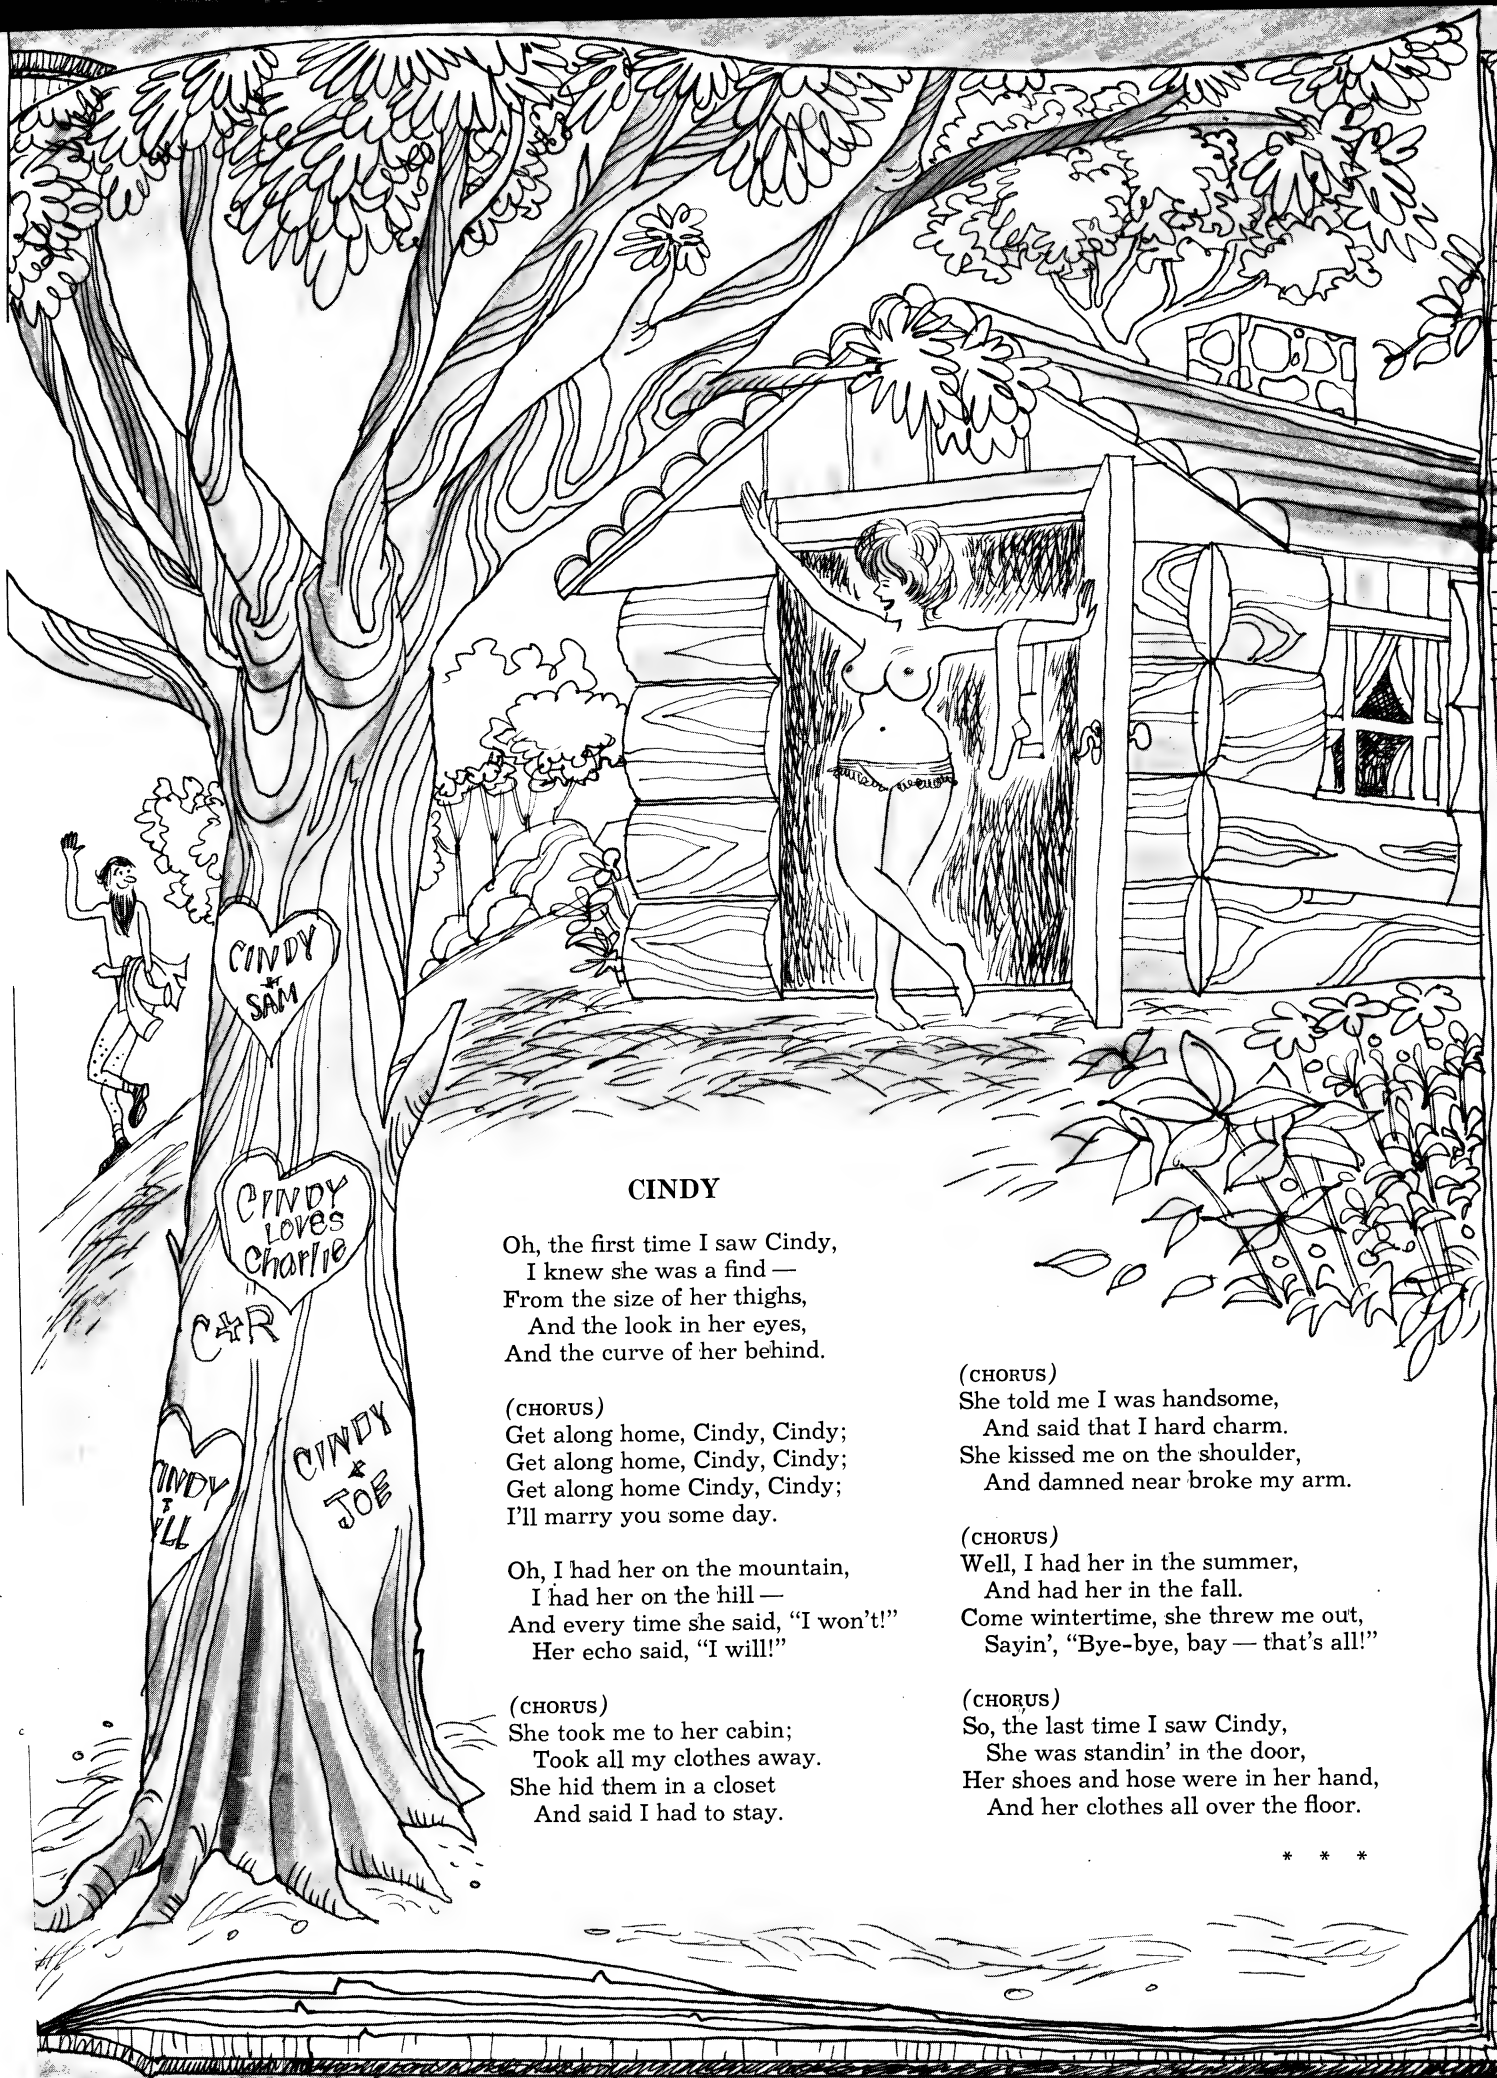 CINDY
+
SAM
CINDY
LOVES
Charlie
C+R
CINDY
&
JOE
CINDY
Oh, the first time I saw Cindy,
I knew she was a find —
From the size of her thighs,
And the look in her eyes,
And the curve of her behind.
(CHORUS)
Get along home, Cindy, Cindy;
Get along home, Cindy, Cindy;
Get along home Cindy, Cindy;
I'll marry you some day.
Oh, I had her on the mountain,
I had her on the hill —
And every time she said, “I won't!”
Her echo said, “I will!”
(CHORUS)
She took me to her cabin;
Took all my clothes away.
She hid them in a closet
And said I had to stay.
(CHORUS)
She told me I was handsome,
And said that I hard charm.
She kissed me on the shoulder,
And damned near broke my arm.
(CHORUS)
Well, I had her in the summer,
And had her in the fall.
Come wintertime, she threw me out,
Sayin', “Bye-bye, bay — that's all!”
(CHORUS)
So, the last time I saw Cindy,
She was standin' in the door,
Her shoes and hose were in her hand,
And her clothes all over the floor.
* * *